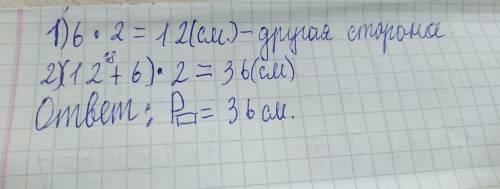 1) 6 • 2 = 12(см) - другая сторона
2) (12 + 6) • 2 = 36(см)
Ответ: P▭ = 36 см.